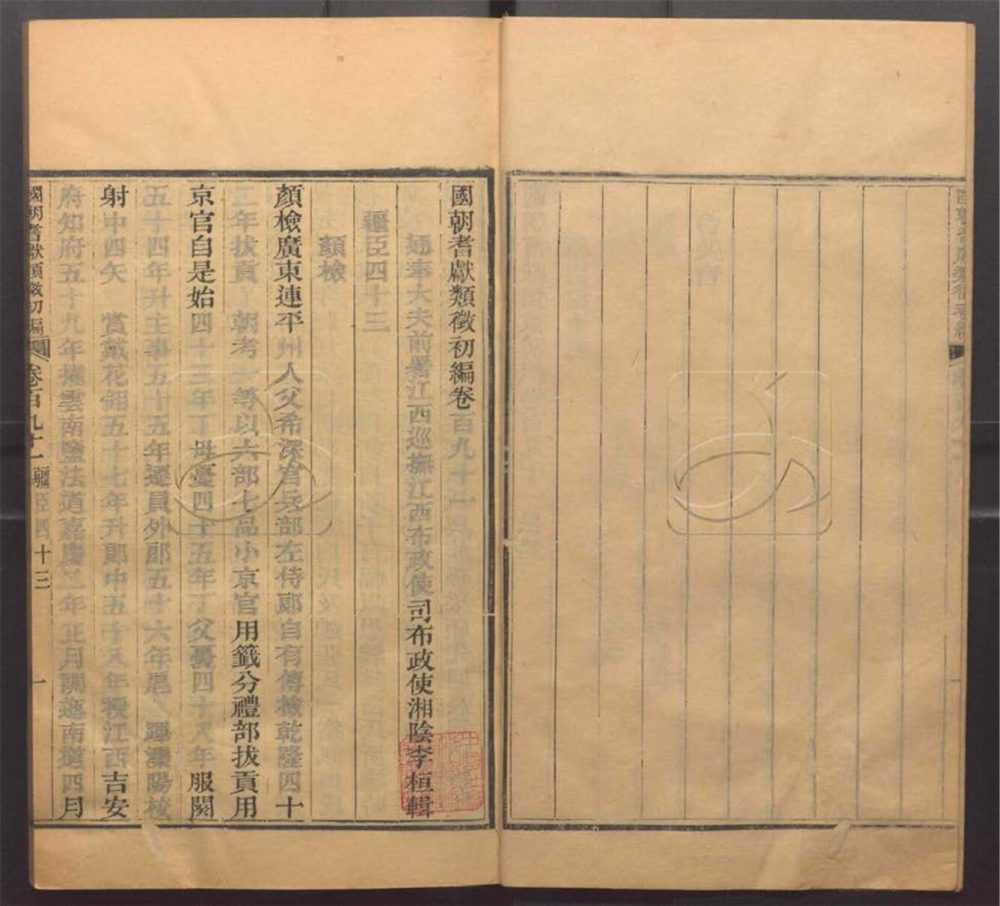 國朝耆獻類徵初編卷百九十一
通奉大夫前署江西巡撫江西布政使司布政使湘陰李桓輯
疆臣四十三
顏檢
顏檢廣東連平州人父希深官兵部左侍郎自有傳檢乾隆四十
二年拔貢 朝考一等以六部七品小京官用籤分禮部拔貢用
京官自是始四十三年丁母憂四十五年丁父憂四十八年服闋
五十四年升主事五十五年遷員外郎五十六年扈 蹕灤陽校
射中四矢 賞戴花翎五十七年升郎中五十八年授江西吉安
府知府五十九年擢雲南鹽法道嘉慶二年正月調迤南道四月
國朝耆獻類徵初編 卷百九十一 疆臣四十三 一